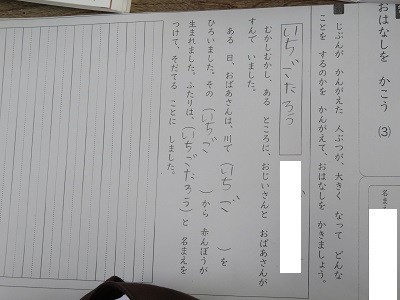 おはなしを かこう (3)
名まえ
じぶんが かんがえた 人ぶつが、大きく なって どんな
ことを するのかを かんがえて、おはなしを かきましょう。
いちごたろう
むかしむかし、ある ところに、おじいさんと おばあさんが
すんで いました。
ある 日、おばあさんは、川で (いちご)を
ひろいました。その (いちご)から 赤んぼうが
生まれました。ふたりは、(いちごたろう)と 名まえを
つけて、そだてる ことに しました。